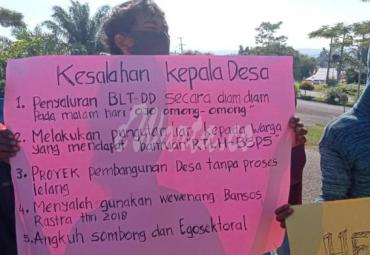 Kesalahan Kepala Desa
1. Penyaluran BLT-DD secara diam diam
Pada malam hari "ojo omong-omong"
2. Melakukan pungutan liar kepada warga
yang mendapat bantuan RTLH-BSPS
3. PROYEK pembangunan Desa tanpa proses
lelang
4. Menyalah gunakan wewenang Bansos
Rastra thn 2018
5. Angkuh sombong dan Egosektoral